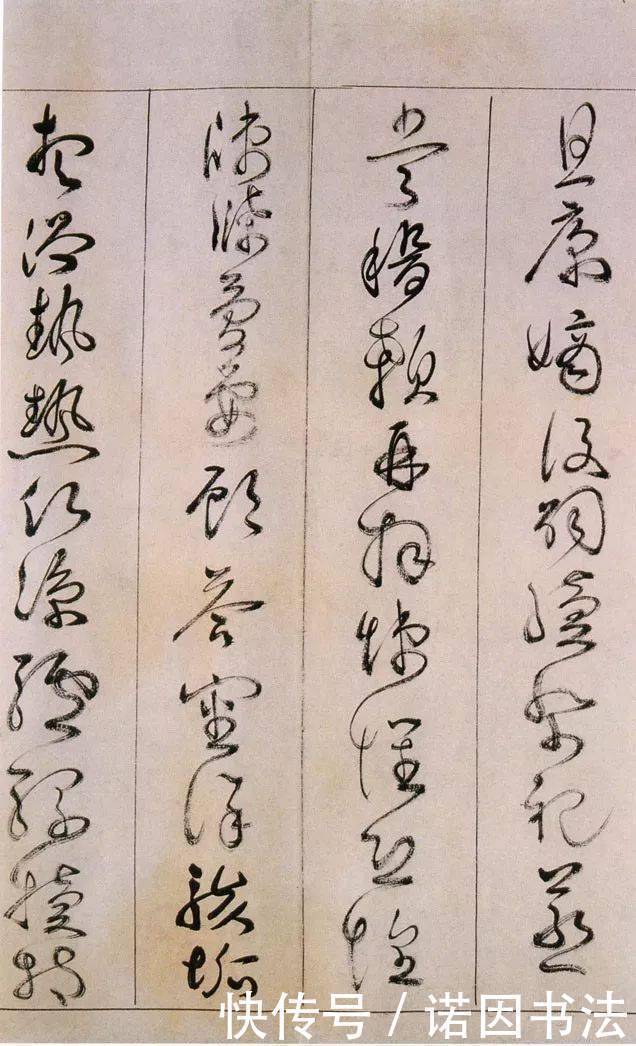 且康嫡後嗣續祭祀蒸
嘗稽顙再拜悚懼恐惶
牋牒簡要顧答審詳骸垢
想浴執熱願涼驢騾犢特
快传号 / 诺因书法